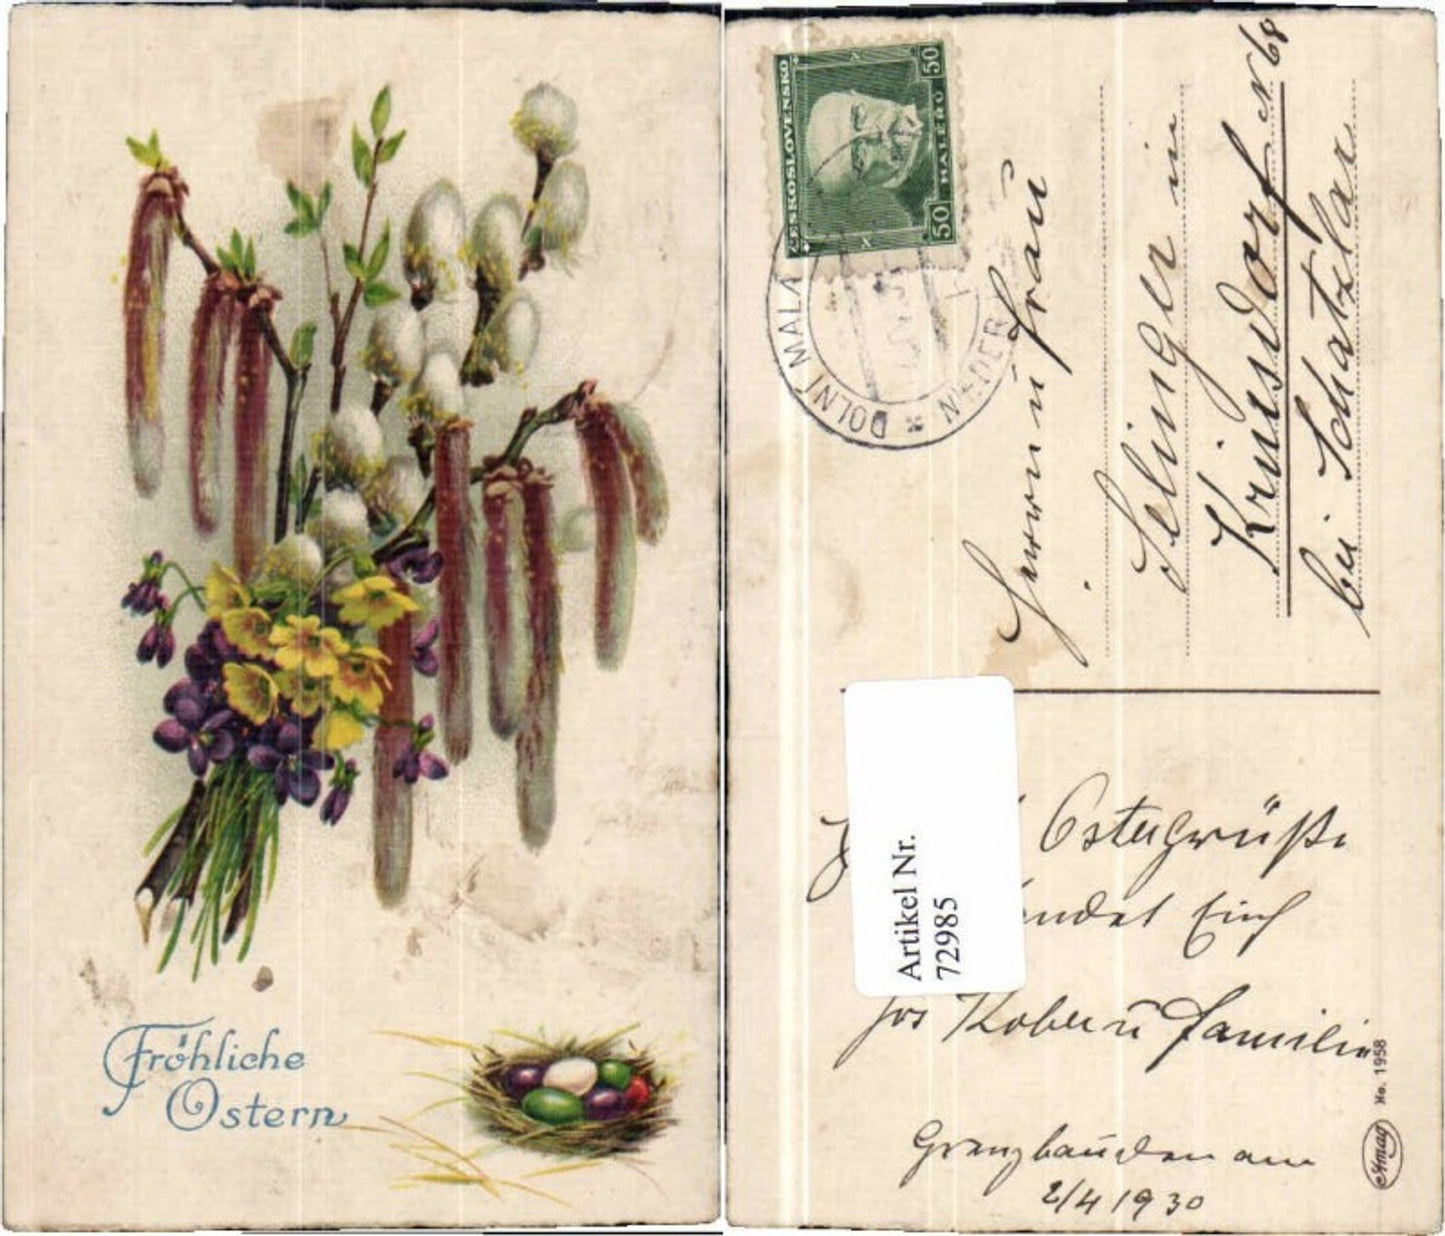 Fröhliche
Ostern
ČESKOSLOVENSKO
50 HALÉŘŮ 50
DOLNÍ MALÁ
NIEDER
Herrn u Frau
Selinger in
Krinsdorf N 68
bei Schatzlar
Artikel Nr.
72985
Ostergrüße
endet Euch
Jos Kober u Familie
Grenzbauden am
2/4 1930
Amag
No. 1958